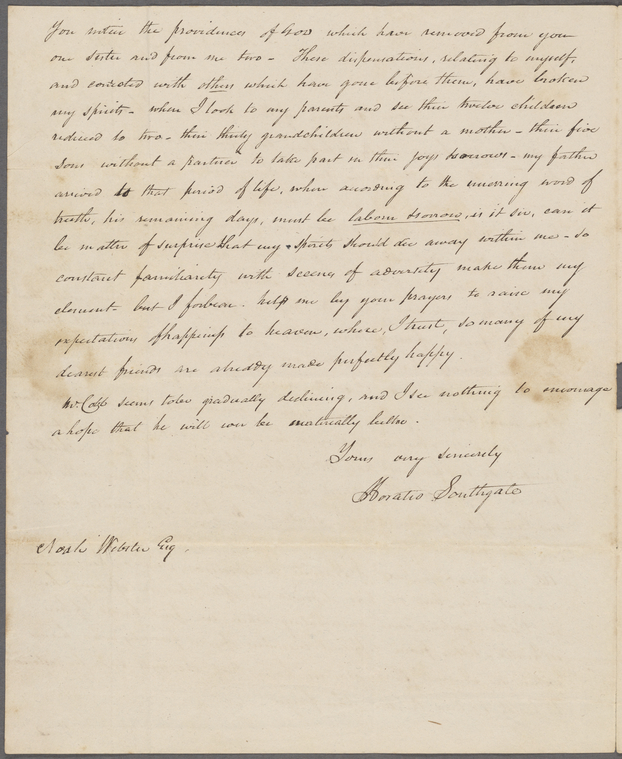 You notice the providences of God which have removed from you
one sister and from me two - These dispensations, relating to myself,
and connected with others which have gone before them, have broken
my spirits - when I look to my parents and see their twelve children
reduced to two - their thirty grandchildren without a mother - their five
sons without a partner to take part in their joys & sorrows - my father
arrived to that period of life, when according to the unerring word of
truth, his remaining days, must be labour & sorrow, is it so, can it
be matter of surprise that my spirits should die away within me - so
constant familiarity with scenes of adversity make them my
element - but I forbear. help me by your prayers to raise my
expectations of happiness to heaven, where, I trust, so many of my
dearest friends are already made perfectly happy.
Mr. Cobb seems to be gradually declining, and I see nothing to encourage
a hope that he will ever be materially better.
Yours very sincerely
Horatio Southgate
Noah Webster Esq.